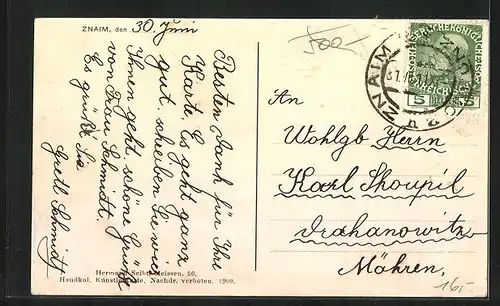 ZNAIM, den 30. Juni
Besten Dank für Ihre
Karte. Es geht ganz
gut, schreiben Sie wie
Ihnen geht, schöne Grüße
von Frau Schmidt.
Es grüßt Sie
Gretl Schmidt
Hermann Seibt, Meissen, 56,
Handkol. Künstlerkarte, Nachdr. verboten. 1909.
500-
ZNAIM
5 5
An
Wohlgb Herrn
Karl Skoupil
Drahanowitz
Mähren.
16,-